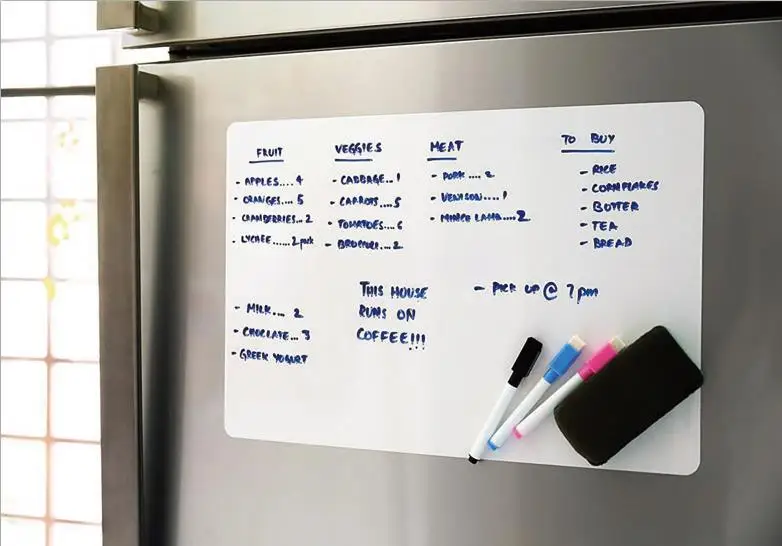 FRUIT
- APPLES....4
- ORANGES....5
- CRANBERRIES...2
- LYCHEE......2 pack
VEGGIES
- CABBAGE...1
- CARROTS....5
- TOMATOES....6
- BROCCOLI...2
MEAT
- PORK....2
- VENISON....1
- MINCE LAMB....2
TO BUY
- RICE
- CORNFLAKES
- BUTTER
- TEA
- BREAD
- MILK.... 2
- CHOCLATE...3
- GREEK YOGURT
THIS HOUSE
RUNS ON
COFFEE!!!
- PICK UP @ 7pm